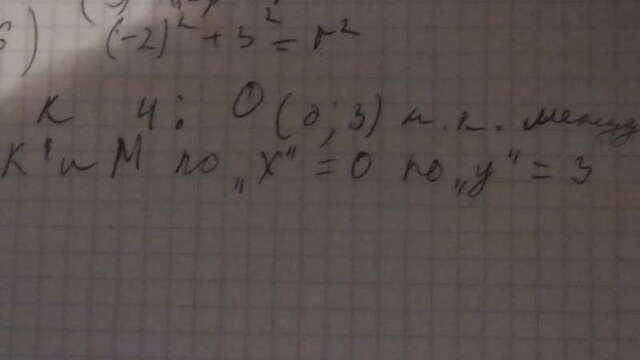 б) (-2)² + 3² = r²
К 4: O (0; 3) т.к. между
К и М по „x" = 0 по „y" = 3